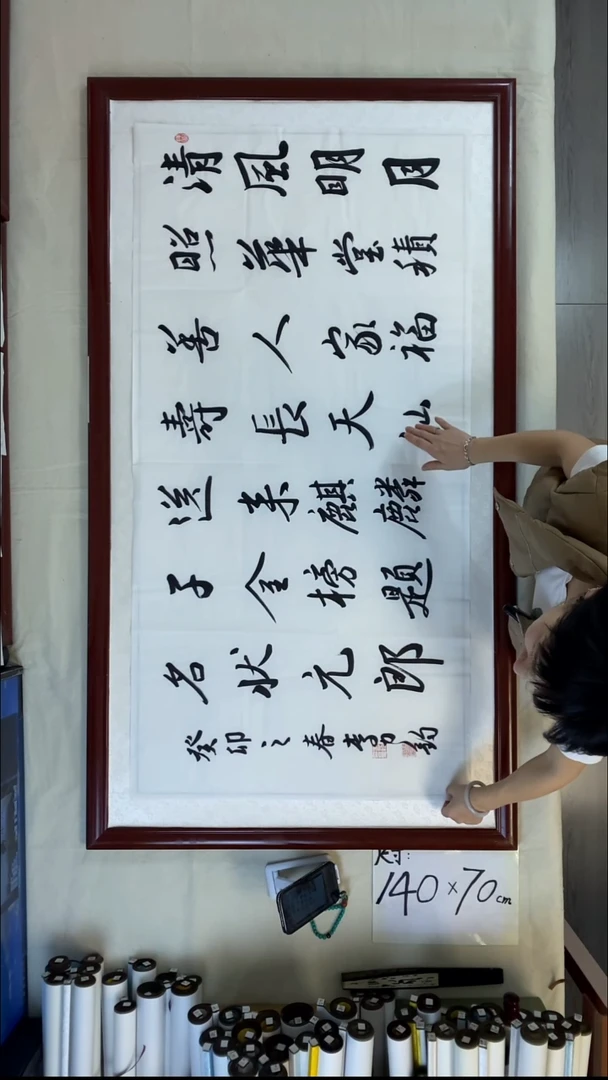 清風明月
照華堂積
善人家福
壽長天仙
送來麒麟
子金榜題
名狀元郎
癸卯之春李
尺寸:
140×70cm